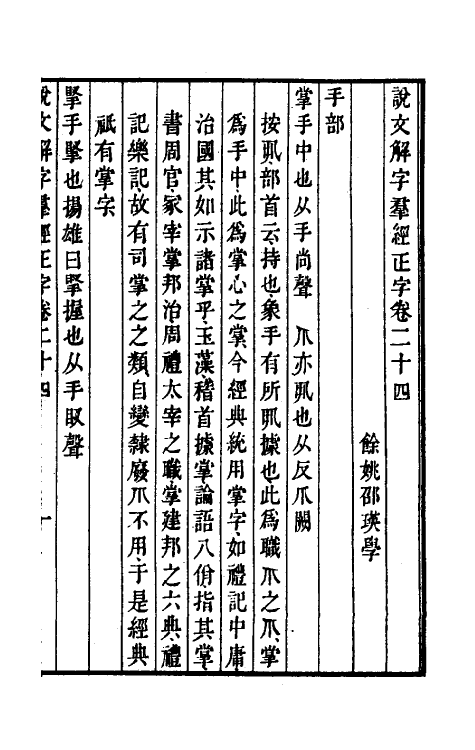 說文解字羣經正字卷二十四
餘姚邵瑛學
手部
掌手中也从手尚聲　爪亦丮也从反爪闕
按丮部首云持也象手有所丮據也此爲職爪之爪掌
爲手中此爲掌心之掌今經典統用掌字如禮記中庸
治國其如示諸掌乎玉藻稽首據掌論語八佾指其掌
書周官冢宰掌邦治周禮太宰之職掌建邦之六典禮
記樂記故有司掌之之類自變隸廢爪不用于是經典
祇有掌字
掔手掔也揚雄曰掔握也从手𦣞聲
說文解字羣經正字卷二十四　一